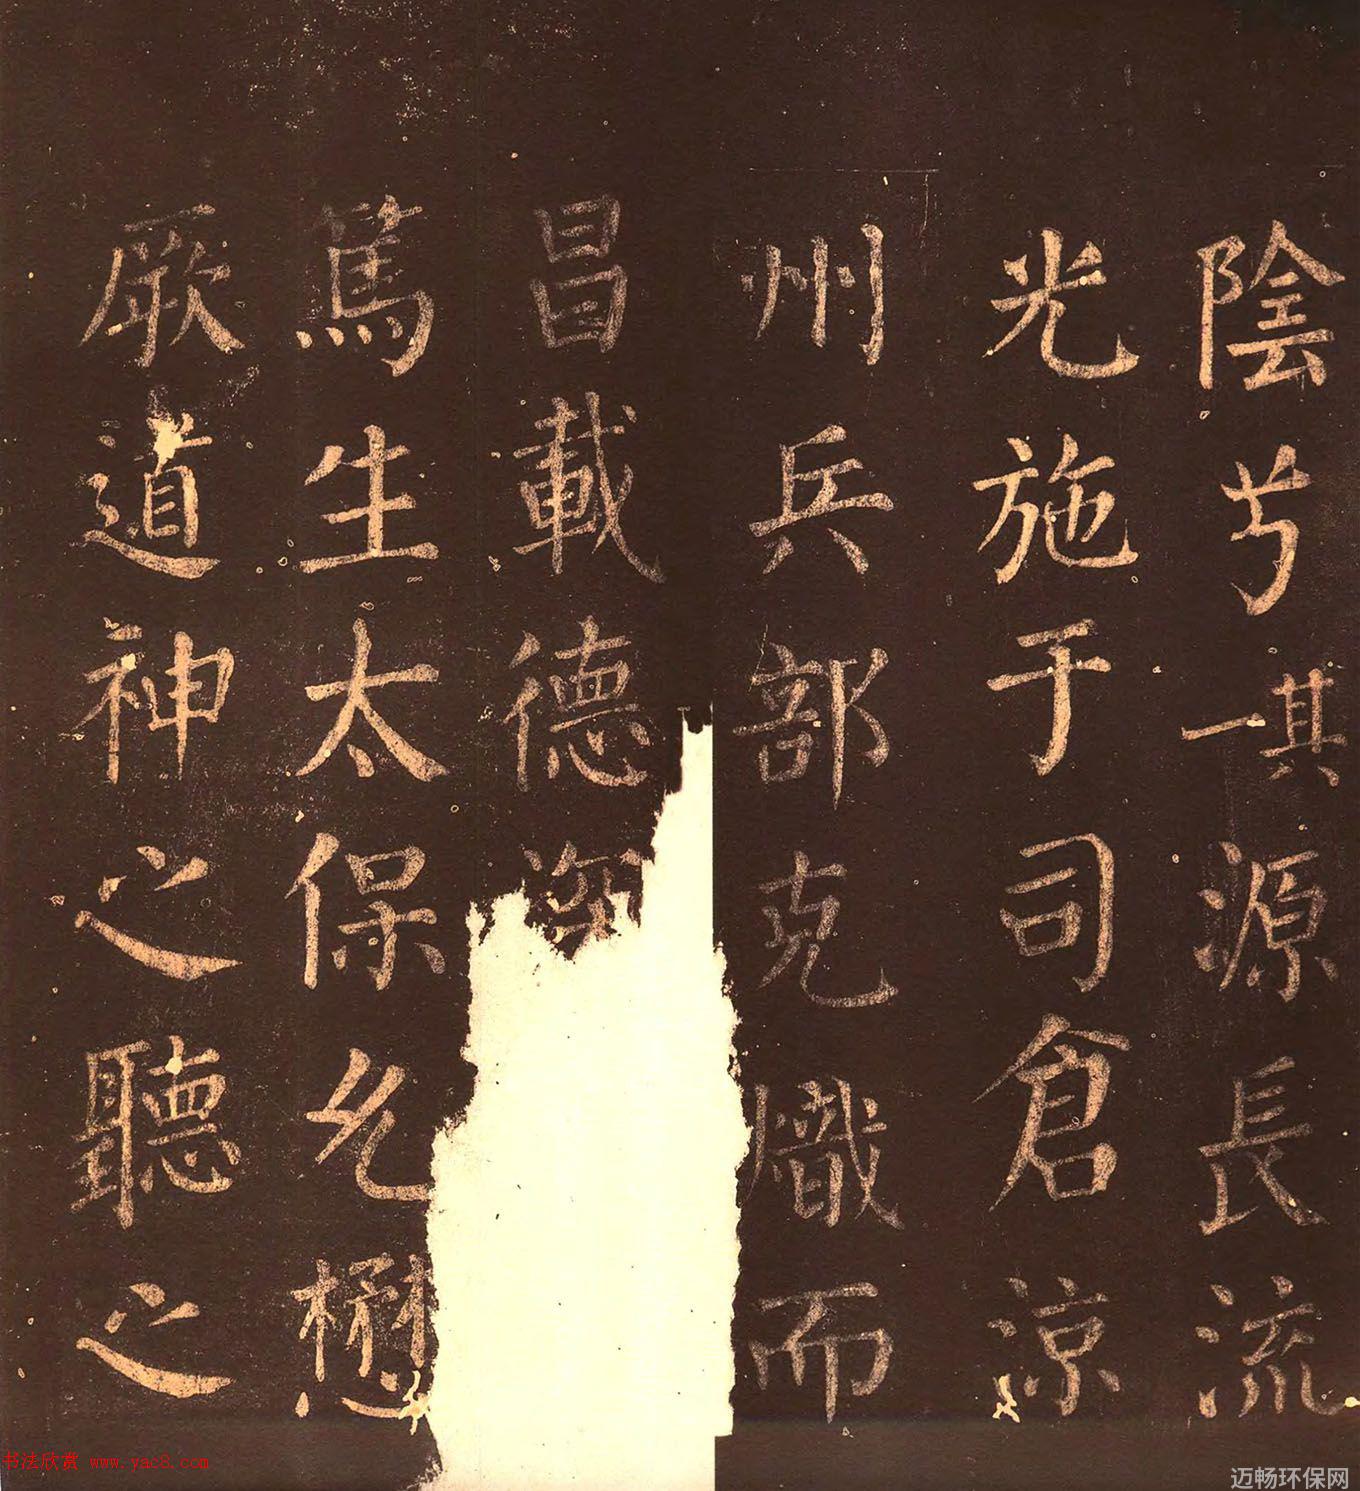 陰兮一其源長流
光施于司倉涼
州兵部克熾而
昌載德深
篤生太保允懋
厥道神之聽之
书法欣赏 www.yac8.com
迈畅环保网